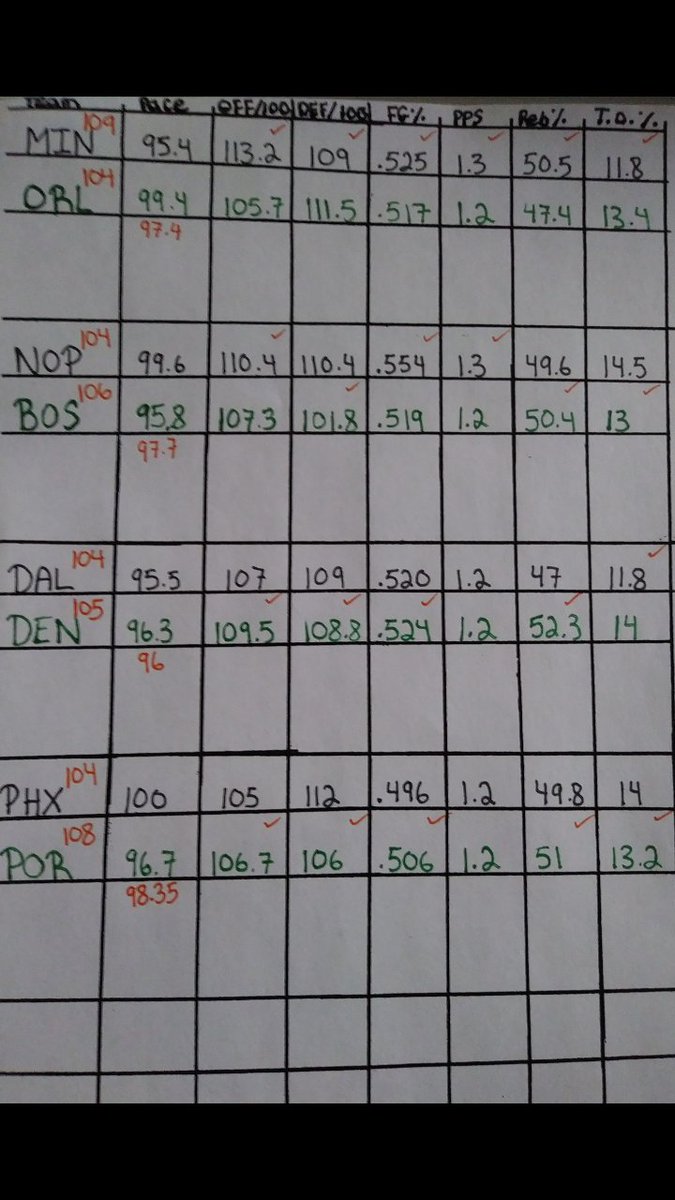 Team Pace OFF/100 DEF/100 FG% PPS Reb% T.O.%
MIN 109 95.4 113.2 109 .525 1.3 50.5 11.8
ORL 104 99.4 105.7 111.5 .517 1.2 47.4 13.4
97.4
NOP 104 99.6 110.4 110.4 .554 1.3 49.6 14.5
BOS 106 95.8 107.3 101.8 .519 1.2 50.4 13
97.7
DAL 104 95.5 107 109 .520 1.2 47 11.8
DEN 105 96.3 109.5 108.8 .524 1.2 52.3 14
96
PHX 104 100 105 112 .496 1.2 49.8 14
POR 108 96.7 106.7 106 .506 1.2 51 13.2
98.35